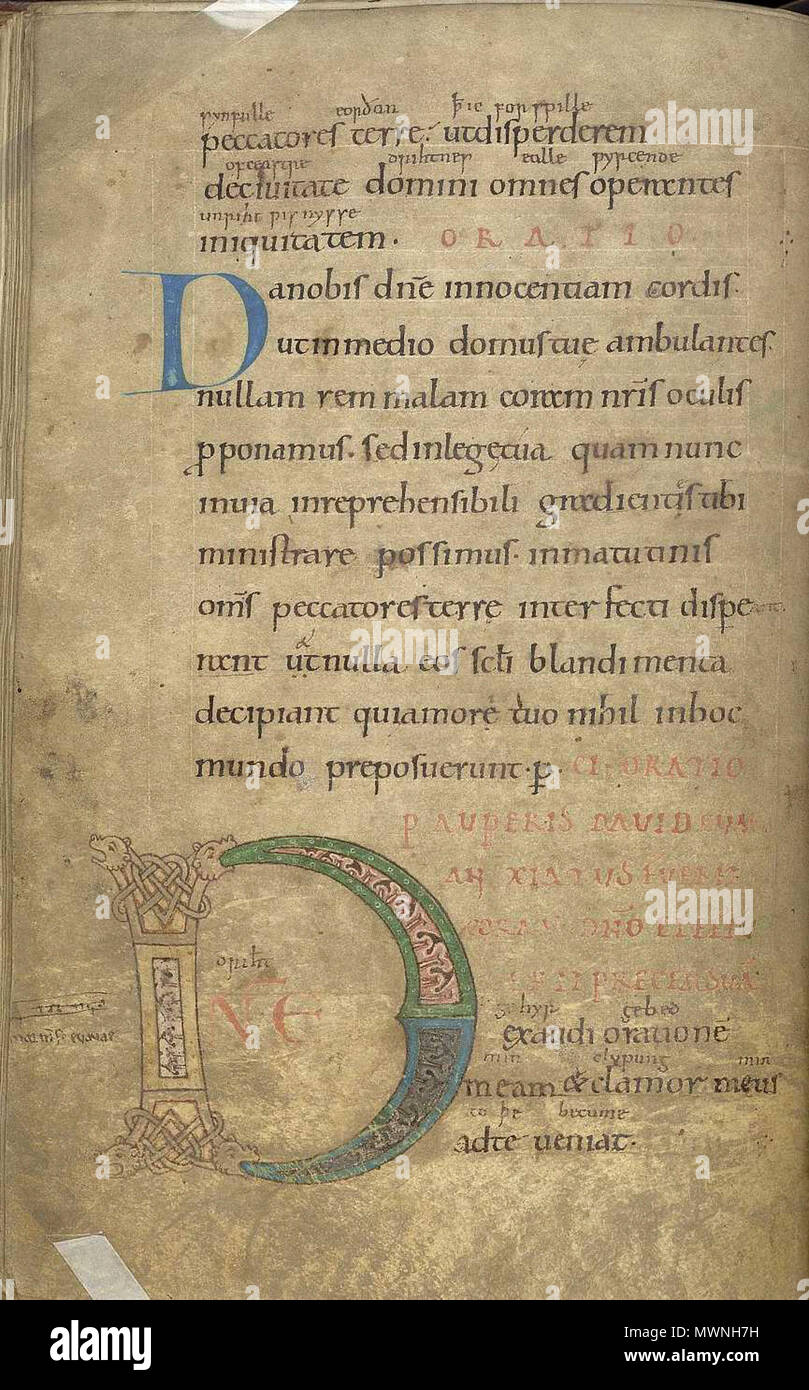 synfulle eorðan þ he forspille
peccatores terre: ut disperderem
of ceastre drihtnes ealle wyrcende
de civitate domini omnes operantes
unriht wisnysse
iniquitatem. ORATIO
Da nobis dñe innocentiam cordis.
ut in medio domus tuę ambulantes
nullam rem malam coram nr̄is oculis
p̱ponamus. sed in lege tua quam nunc
in via inreprehensibili gradientis tibi
ministrare possimus. in matutinis
oms̄ peccatores terrę interfecti dispe
reant ut nulla eos scłi blandimenta
decipiant qui amore tuo nihil in hoc
mundo preposuerunt. p̱.
CI. ORATIO
PAUPERIS DAVID CUM
ANXIATUS FUERIT
driht
NĒ
gehyr gebed
exaudi orationē
min clypung min
meam & clamor meus
to þe becume
ad te veniat.
alamy
Image ID: MWNH7H
www.alamy.com